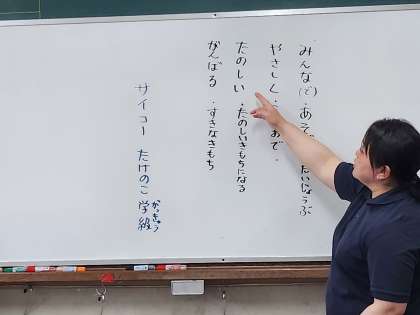 みんな(で)・あそ だいじょうぶ
やさしく・ おで・
たのしい・たのしいきもちになる
がんばる・すきなきもち
サイコー たけのこ学級
がっきゅう